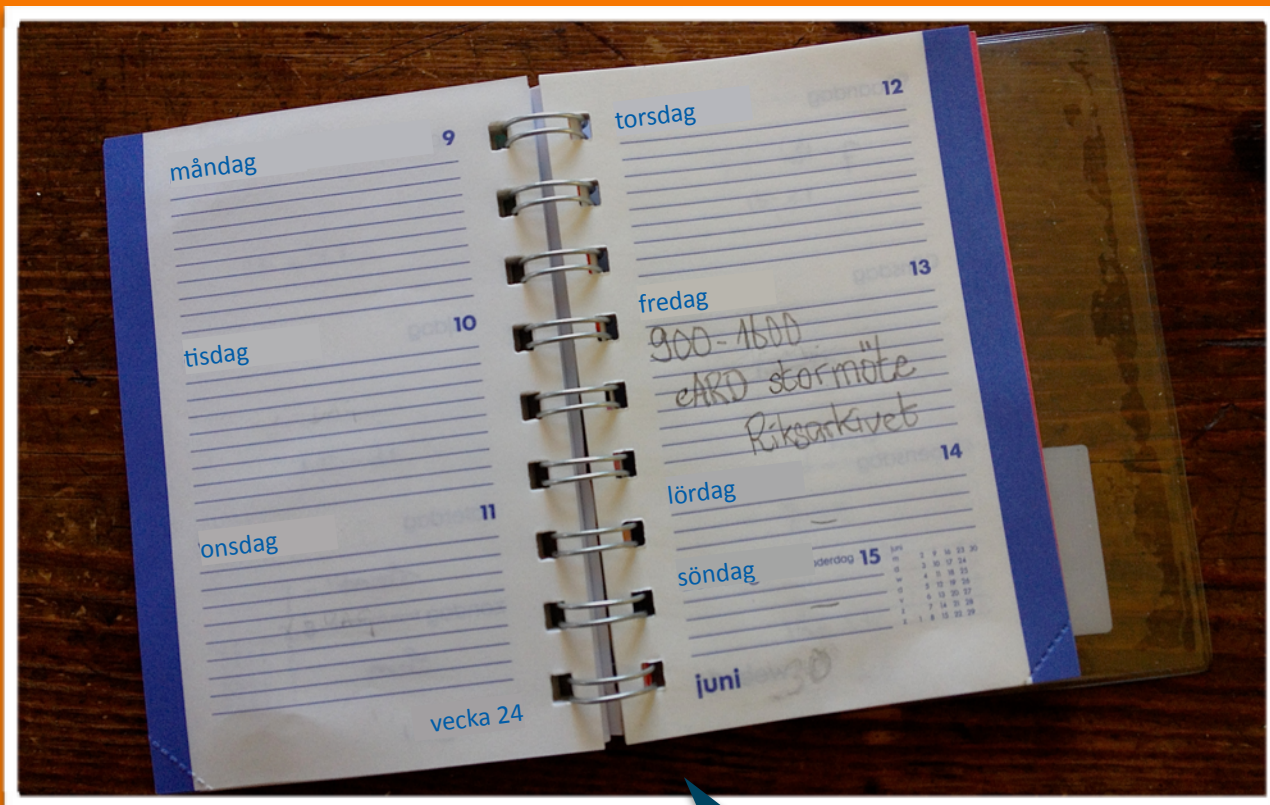 måndag
9
tisdag
10
onsdag
11
vecka 24
torsdag
12
fredag
13
900-1600
eARD stormöte
Riksarkivet
lördag
14
söndag
15
juni
30